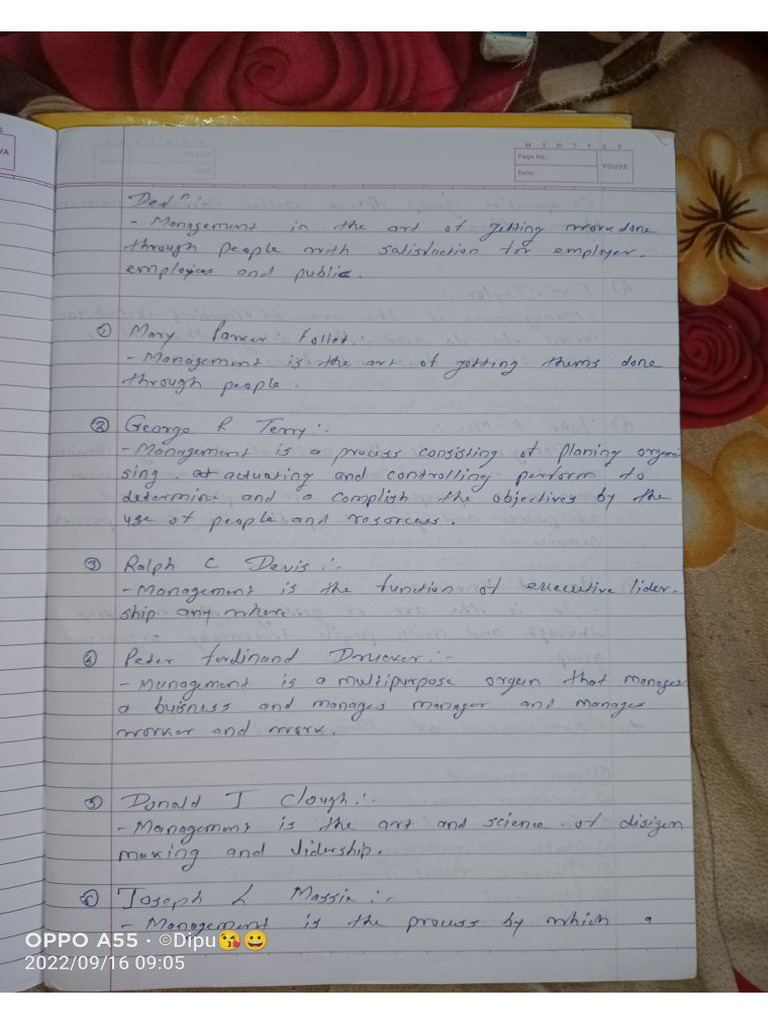 M T W T F S S
Page No.:
Date:
YOUVA
VA
Defn :-
- Management in the art of getting work done
through people with satisfaction for employer,
employees and public.
① Mary Parker Follet :-
- Management is the art of getting thems done
through people.
② George R Terry :-
- Management is a process consisting of planing organi
sing, at actuating and controlling perform to
determini and a complish the objectives by the
use of people and resorces.
③ Ralph C Davis :-
- Management is the function of executive lider-
ship any where
④ Peter Ferdinand Drucker :-
- Management is a multipurpose organ that manages
a buisness and manages manager and manages
worker and work.
⑤ Donald J Clough :-
- Management is the art and science of disizen
making and lidership.
⑥ Joseph L Massie :-
- Management is the process by which a
OPPO A55 · ©Dipu😘😀
2022/09/16 09:05